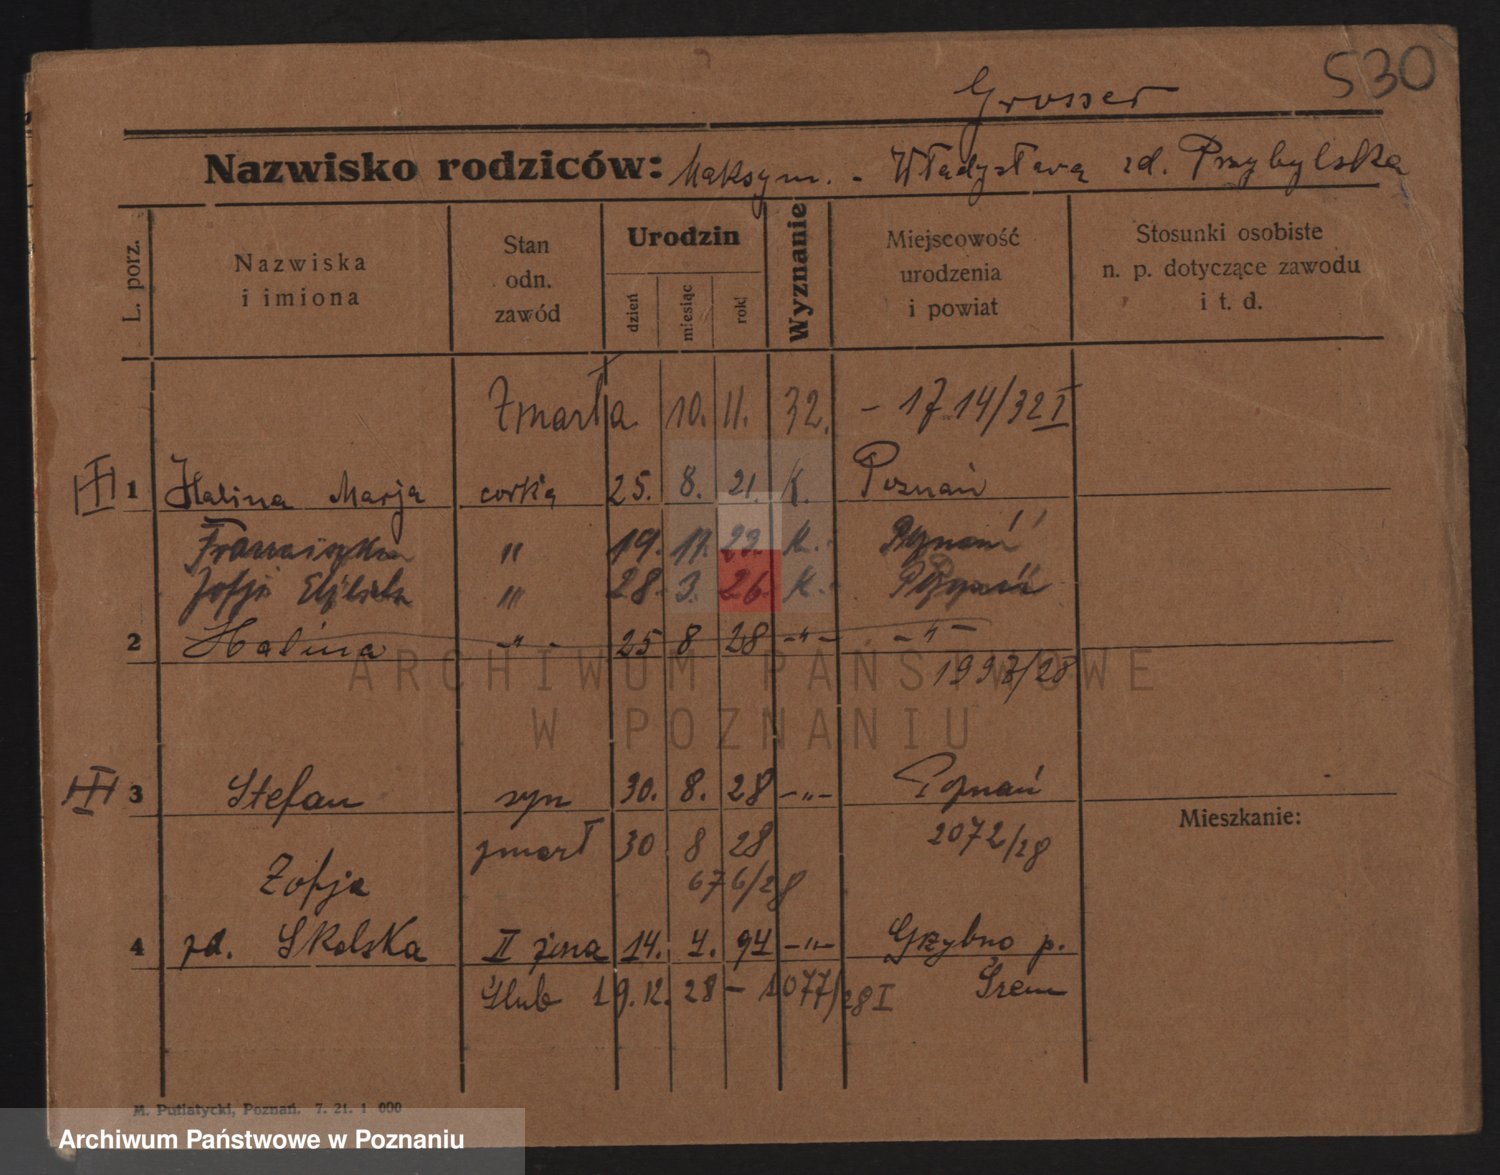 530
Grosser
Nazwisko rodziców: Maksym. - Władysława zd. Przybylska
L. porz.
Nazwiska i imiona
Stan odn. zawód
Urodzin
dzień
miesiąc
rok
Wyznanie
Miejscowość urodzenia i powiat
Stosunki osobiste n. p. dotyczące zawodu i t. d.
Zmarła 10. 11. 32. - 1714/32 I
1 Halina Marja corka 25. 8. 21. K. Poznań
Franciszka " 19. K. Poznań
Zofja Elżbieta " 28. 3. 26. K. Poznań
2 Halina -"- 25 8 28 -"- -"-
1998/28
3 Stefan syn 30. 8. 28 -"- Poznań
zmarł 30 8 28 2072/28
Zofja 676/28
4 zd. Skolska II żona 14. 4. 94 -"- Grzybno p.
Ślub 19. 12. 28 - 1077/28 I Śrem
Mieszkanie:
ARCHIWUM PAŃSTWOWE
W POZNANIU
M. Putiatycki, Poznań. 7. 21. 1 000
Archiwum Państwowe w Poznaniu